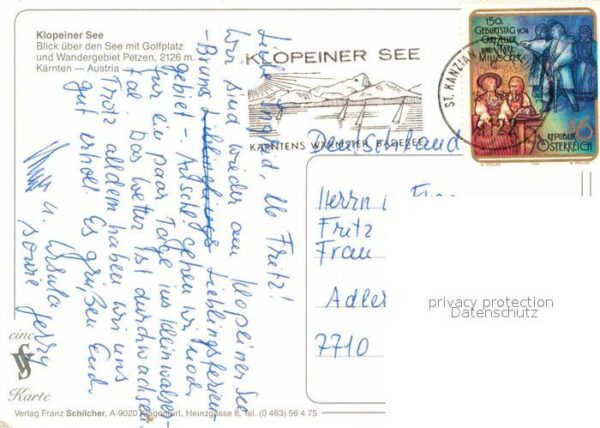 Klopeiner See
Blick über den See mit Golfplatz
und Wandergebiet Petzen, 2126 m.
Kärnten — Austria
KLOPEINER SEE
KÄRNTENS WÄRMSTER BADESEE
ST. KANZIAN
150.
GEBURTSTAG VON
CARL ZELLER
UND KARL
MILLÖCKER
6
REPUBLIK
ÖSTERREICH
Liebe Ingrid, lb. Fritz!
Wir sind wieder am Klopeiner See
- Brunos Lieblingsferien-
gebiet -. Anschl. gehen wir noch
für ein paar Tage ins Kleinwalser-
tal. Das Wetter ist durchwachsen.
Trotz alldem haben wir uns
gut erholt. Es grüßen Euch
u. Ursula
sowie Jerry
Deutschland
Herrn u. Frau
Fritz
Frau
Adler
7710
privacy protection
Datenschutz
eine
Karte
Verlag Franz Schilcher, A-9020 Klagenfurt, Heinzgasse 8, Tel. (0 463) 56 4 75